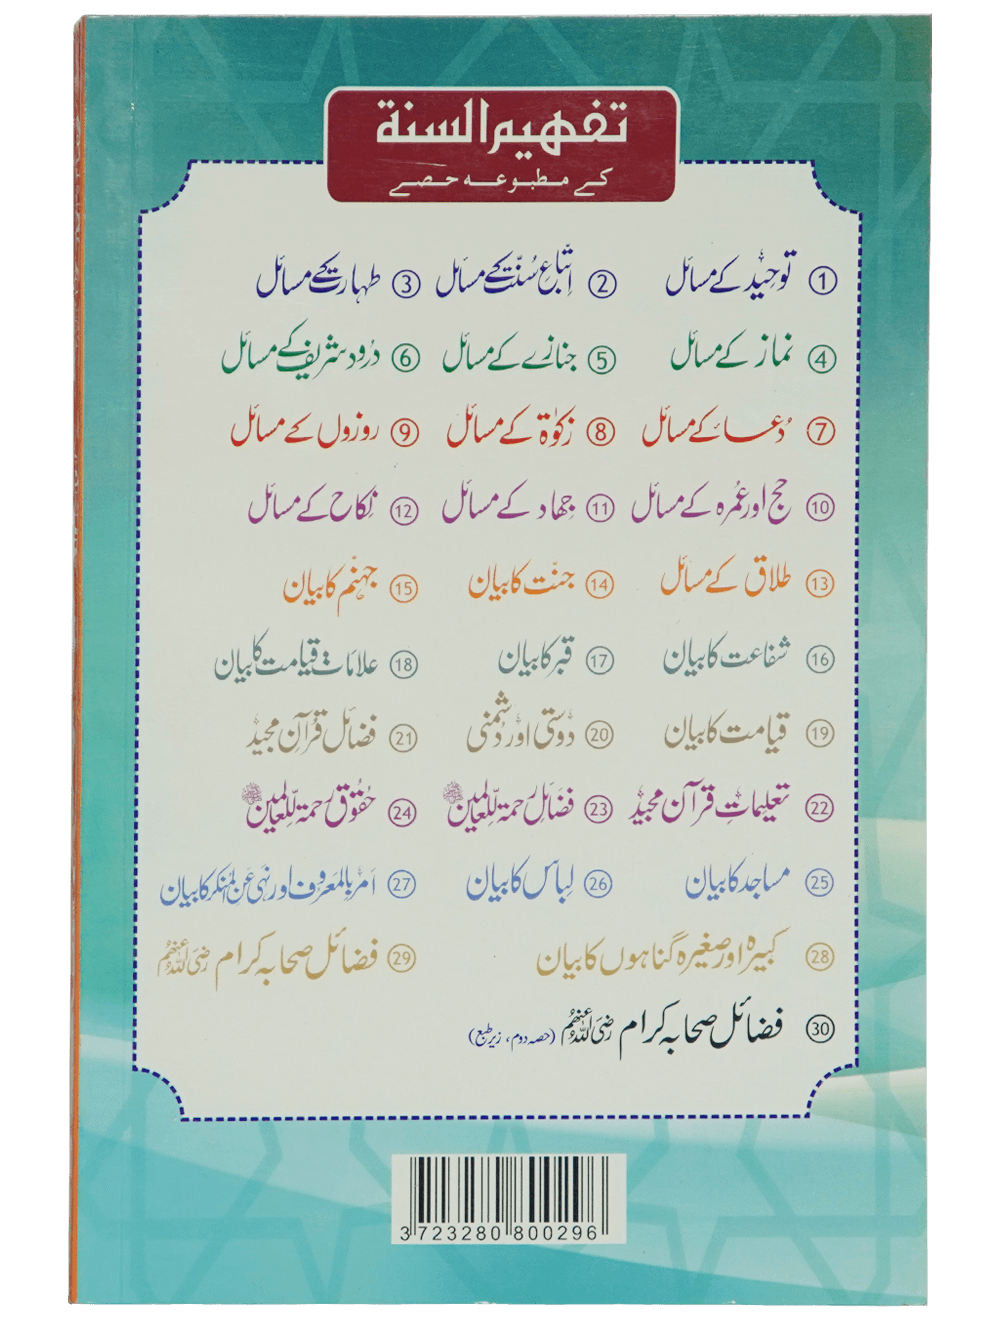 تفہیم السنۃ
کے مطبوعہ حصے
① توحید کے مسائل ② اتباع سُنّت کے مسائل ③ طہارت کے مسائل
④ نماز کے مسائل ⑤ جنازے کے مسائل ⑥ درود شریف کے مسائل
⑦ دُعا کے مسائل ⑧ زکوٰۃ کے مسائل ⑨ روزوں کے مسائل
⑩ حج اور عمرہ کے مسائل ⑪ جہاد کے مسائل ⑫ نکاح کے مسائل
⑬ طلاق کے مسائل ⑭ جنّت کا بیان ⑮ جہنّم کا بیان
⑯ شفاعت کا بیان ⑰ قبر کا بیان ⑱ علاماتِ قیامت کا بیان
⑲ قیامت کا بیان ⑳ دوستی اور دشمنی ㉑ فضائل قرآن مجید
㉒ تعلیماتِ قرآن مجید ㉓ فضائل رحمۃ للعالمین ﷺ ㉔ حقوق رحمۃ للعالمین ﷺ
㉕ مساجد کا بیان ㉖ لباس کا بیان ㉗ امر بالمعروف اور نہی عن المنکر کا بیان
㉘ کبیرہ اور صغیرہ گناہوں کا بیان ㉙ فضائل صحابہ کرام رضی اللہ عنہم
㉚ فضائل صحابہ کرام رضی اللہ عنہم (حصہ دوم، زیر طبع)
3723280800296